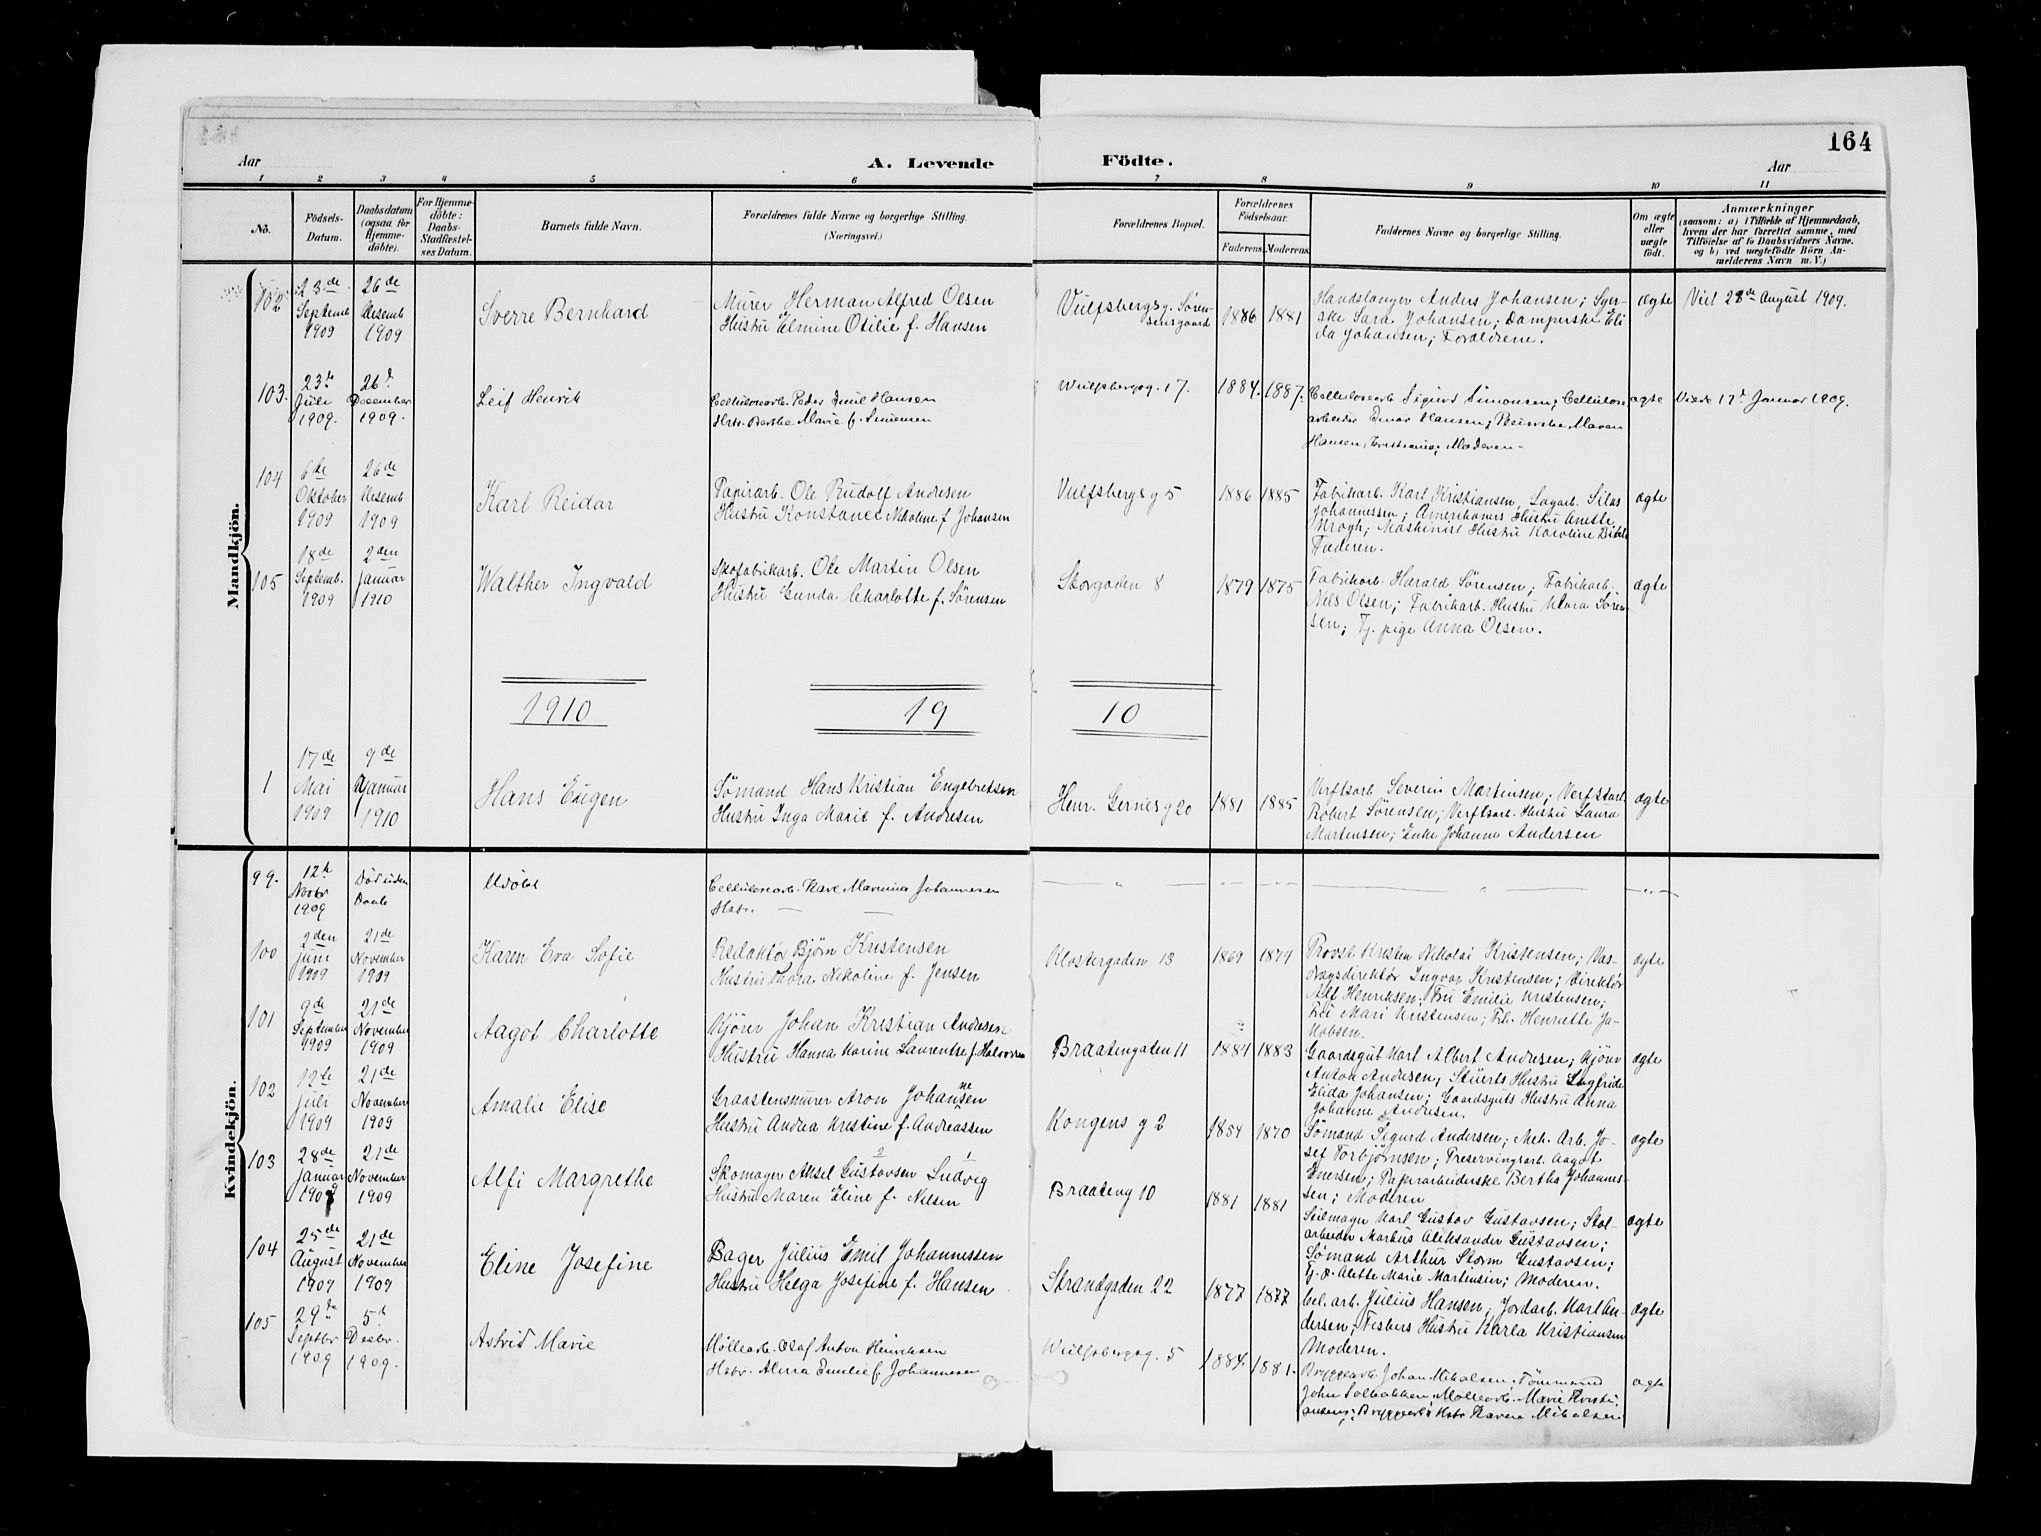 164
Aar
A. Levende Födte.
Aar
1 2 3 4 5 6 7 8 9 10 11
No.
Födsels-Datum.
Daabsdatum (ogsaa for Hjemmedöbte).
For Hjemmedöbte: Daabs-Stadfæstelses Datum.
Barnets fulde Navn.
Forældrenes fulde Navne og borgerlige Stilling.
(Næringsvei.)
Forældrenes Bopæl.
Forældrenes Födselsaar.
Faderens. Moderens.
Faddernes Navne og borgerlige Stilling.
Om ægte eller uægte födt.
Anmærkninger
(saasom: a) i Tilfælde af Hjemmedaab,
hvem der har forrettet samme, med
Tilföielse af to Daabsvidners Navne.
og b) ved uægtefödte Börn Anmelderens Navn m. V.)
Mandkjön.
102 23de Septemb 1909 26de Desemb 1909
Sverre Bernhard
Murer Herman Alfred Olsen
Hustru Elmine Otilie f. Hansen
Vulfsbergsg. Sörensensgaard
1886 1881
Handslanger Anders Johansen; Syerske Sara Johansen; Damperske Elida Johansen; Forældrene.
ægte
Viet 28de August 1909.
103. 23de Juli 1909. 26d. December 1909.
Leif Henrik
Cellulosearb. Peder Emil Hansen
Hstr. Berthe Marie f. Simensen
Wulfsbergsg. 17.
1884. 1887.
Cellulosearb Sigurd Simonsen; Cellulosearbeider Einar Hansen; Maren
Hansen, Kristiania; Moderen.
ægte
Viede 17d Januar 1909.
104 6te Oktober 1909 26de Desemb 1909
Karl Reidar
Papirarb. Ole Rudolf Andresen
Hustru Konstance Nikoline f. Johansen
Vulfsbergs g 5
1886 1885
Fabrikarb. Karl Kristiansen, Sagarb. Silas
Johannessen; Amerikaners Hustru Anette
Krogh; Maskinist Hustru Karoline
Faderen.
ægte
105 18de Septemb. 1909 2den Januar 1910
Walther Ingvald
Skofabrikarb. Ole Martin Olsen
Hustru Gunda Charlotte f. Sörensen
Skovgaden 8
1879 1875
Fabrikarb. Harald Sörensen; Fabrikarb.
Nils Olsen; Fabrikarb. Hustru Klara Sörensen; Tj. pige Anna Olsen.
ægte
1910 19 10
1 17de Mai 1909 9de Januar 1910
Hans Eugen
Sömand Hans Kristian Engebretsen
Hustru Inga Marie f. Andresen
Henr. Gernesg 20
1881 1885
Verftsarb. Severin Martinsen; Verftsarb.
Robert Sörensen; Verftsarb. Hustru Laura
Martensen; Enke Johanne Andersen
ægte
Kvindekjön.
99. 12te Novbr 1909 Död uden Daab
Udöbt
Cellulosearb. Karl Marinius Johannesen
Hstr.
100 2den Juni 1909 21de November 1909
Karen Eva Sofie
Redaktör Björn Kristensen
Hustru Thora Nikoline f. Jensen
Klostergaden 13
1869 1874
Provst Kristen Nikolai Kristensen; Vasdragsdirektör Ingvar Kristensen; Direktör
Alf Henriksen; Fru Emilie Kristensen;
Fru Mari Kristensen; Frk. Henriette Jakobsen.
ægte
101 9de September 1909 21de November 1909
Aagot Charlotte
Kjörer Johan Kristian Andresen
Hustru Hanna Karine Laurentse f. Halvorsen
Braatengaden 11
1884 1883
Gaardsgut Karl Albert Andresen; Kjörer
Anton Andresen; Stuerts Hustru Sigfride
Elida Johansen; Gaardsguts Hustru Anna
Johanne Andresen.
ægte
102 12te Juli 1909 21de November 1909
Amalie Elise
Graastensmurer Aron Johannesen
Hustru Andrea Kristine f. Andreassen
Kongens g 2
1854 1870
Sömand Sigurd Andersen; Mek. Arb. Josef Torbjörnsen; Preservingsarb. Aagot
Enersen; Papirarbeiderske Bertha Johannessen; Moderen
ægte
103 28de Januar 1909 21de November 1909
Alfi Margrethe
Skomager Aksel Gustavsen 2 Ludvig 1
Hustru Maren Eline f. Nilsen
Braateng 10
1881 1881
Seilmager Karl Gustav Gustavsen; Stolarbeider Markus Aleksander Gustavsen;
Sömand Arthur Storm Gustavsen;
Tj. p. Alette Marie Martinsen; Moderen.
ægte
104 25de August 1909 21de November 1909
Eline Josefine
Bager Julius Emil Johannessen
Hustru Helga Josefine f. Hansen
Strandgaden 22
1877 1877
Cel. arb. Julius Hansen; Jordarb. Karl Andersen; Fiskers Hustru Karla Kristiansen
Moderen.
ægte
105 29de Septbr 1909 5d Decbr. 1909.
Astrid Marie
Möllearb. Olaf Anton Henriksen
Hstr. Alma Emilie f. Johannesen
Wulfsbergsg. 5
1884. 1881.
Bryggearb Johan Mikalsen; Tömmermand
John Solbakken; Möllearb. Marie Kristiansens; Bryggearb's Hstr Karen Mikalsen
ægte